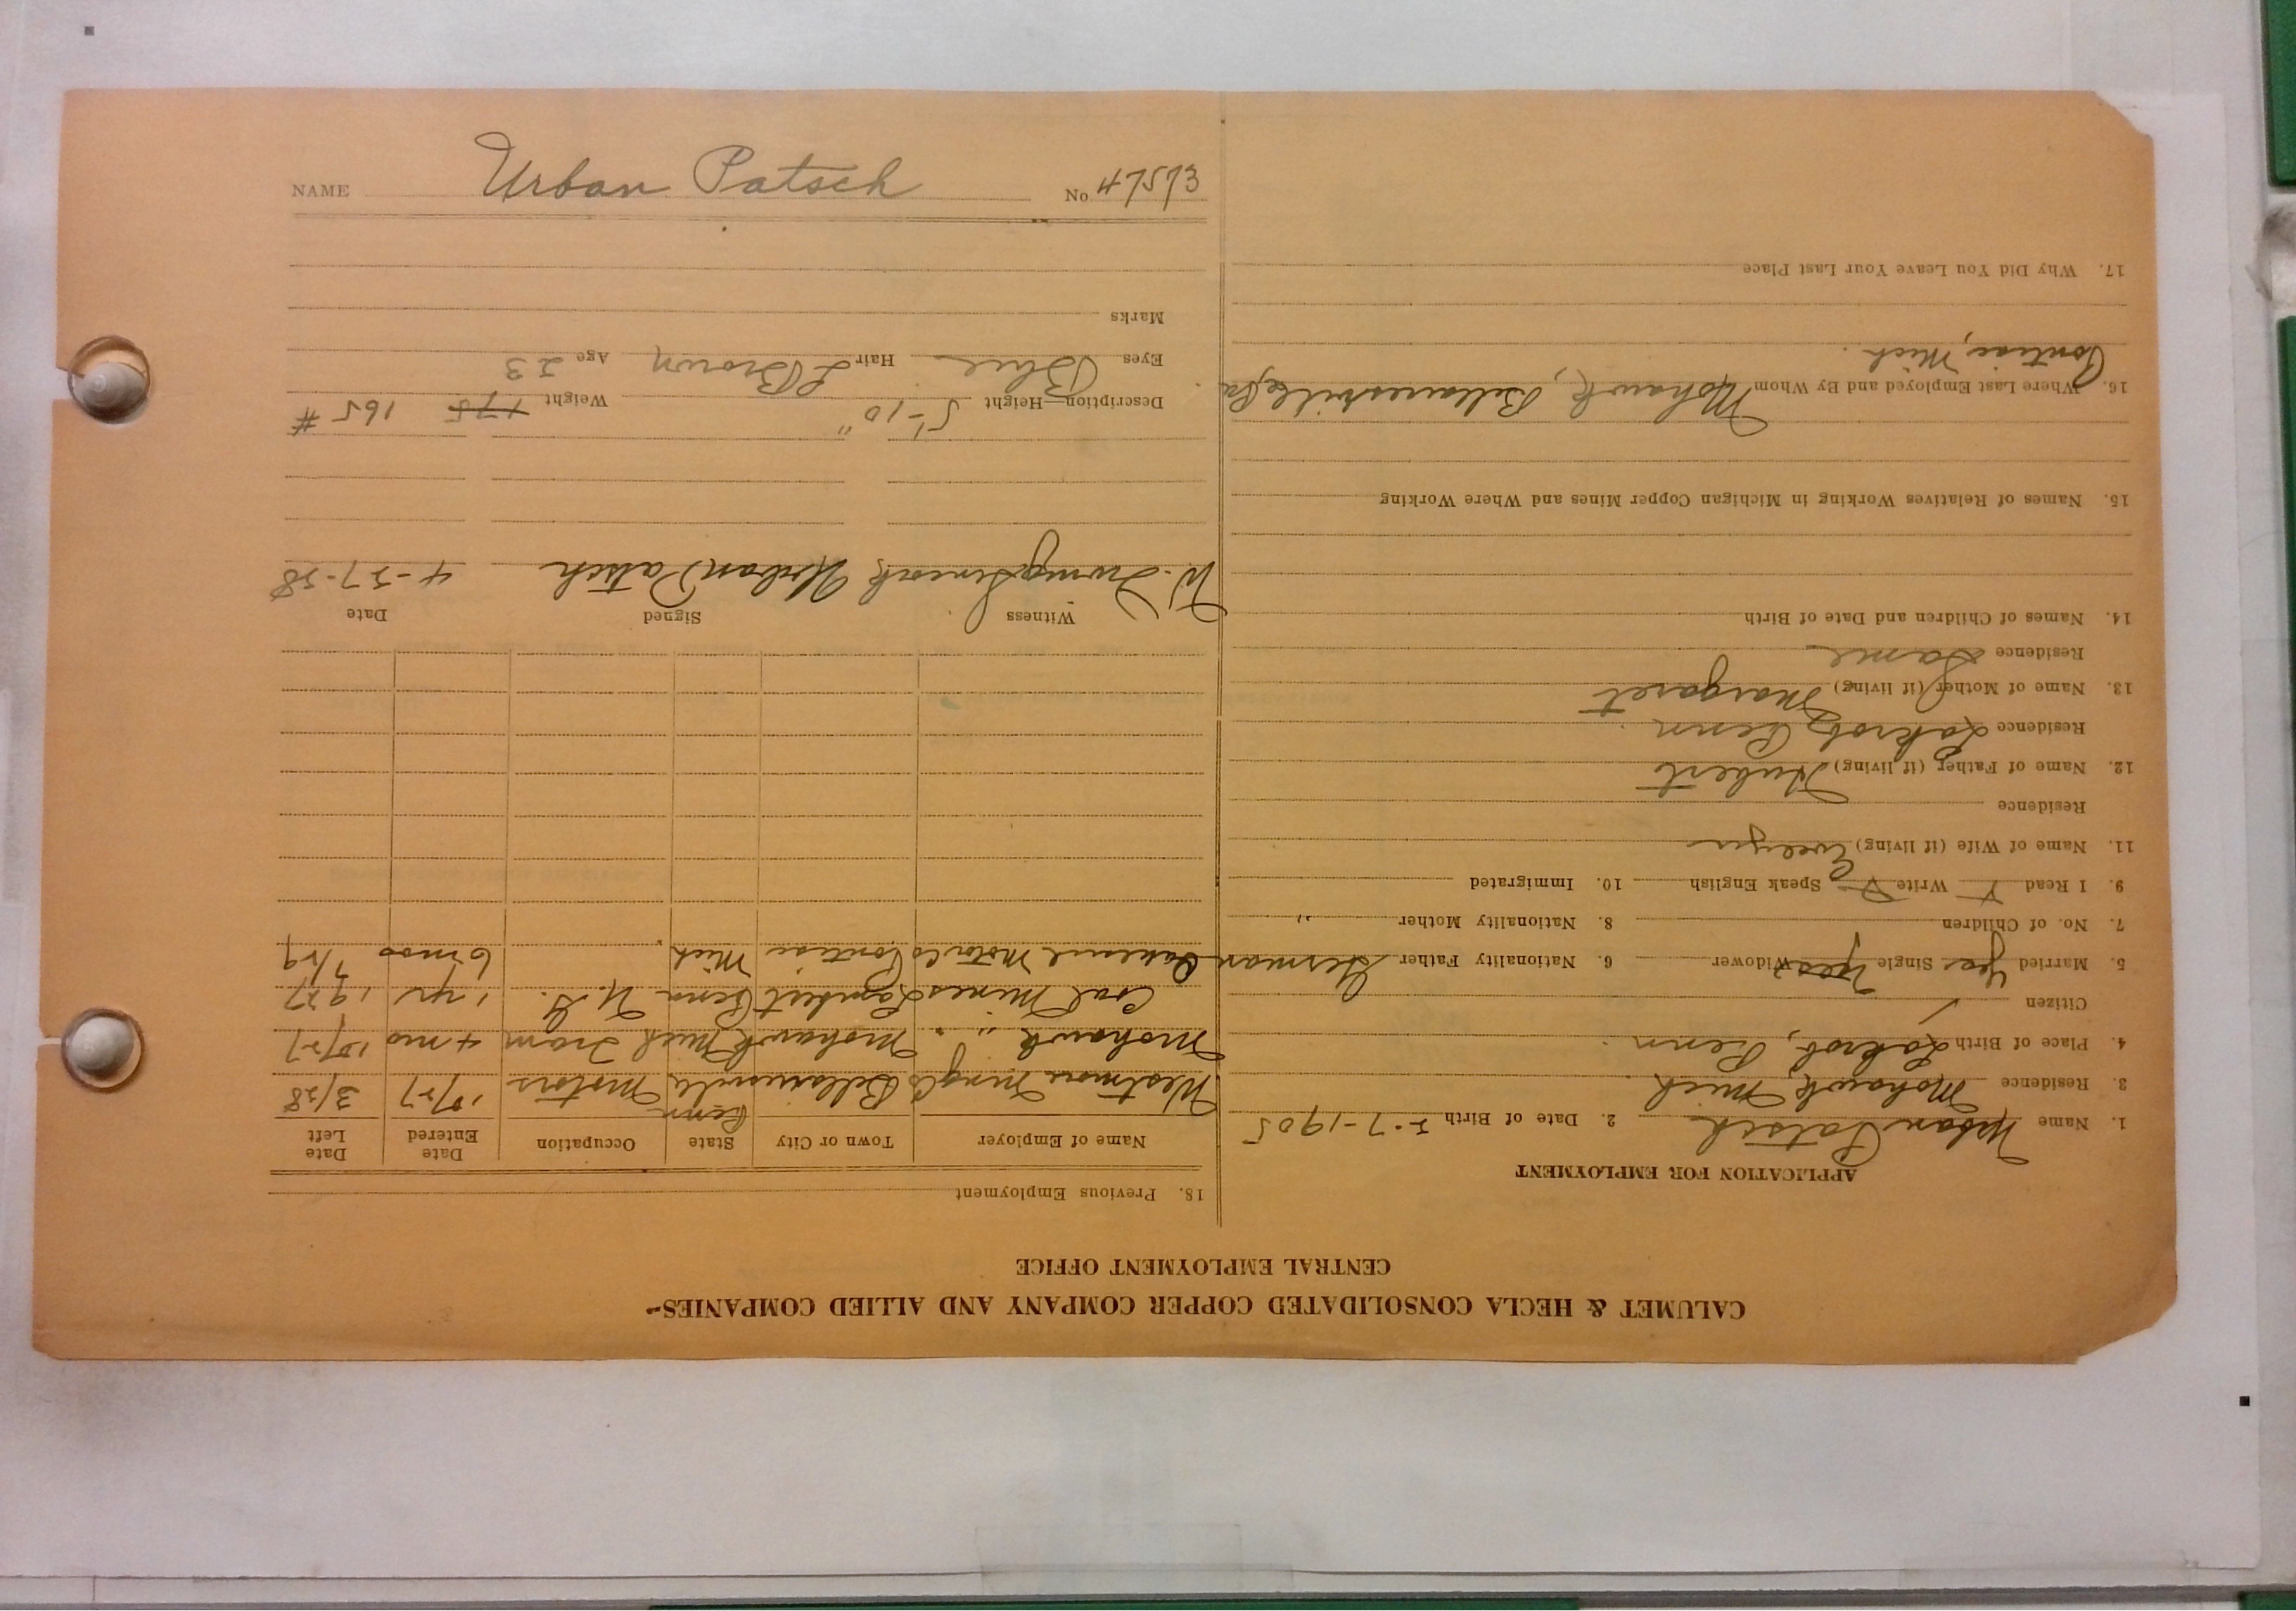 NAME Urban Patsch No 47573
CALUMET & HECLA CONSOLIDATED COPPER COMPANY AND ALLIED COMPANIES
CENTRAL EMPLOYMENT OFFICE
APPLICATION FOR EMPLOYMENT
1. Name Urban Patsch 2. Date of Birth 2-7-1905
3. Residence Mohawk Mich
4. Place of Birth Lakrob, Penn.
Citizen
5. Married Yes Single Yes Widower 6. Nationality Father German
7. No. of Children 8. Nationality Mother "
9. I Read Write Speak English 10. Immigrated
11. Name of Wife (if living) Evelyn
Residence
12. Name of Father (if living) Hubert
Residence Lakrob, Penn
13. Name of Mother (if living) Margaret
Residence Same
14. Names of Children and Date of Birth
15. Names of Relatives Working in Michigan Copper Mines and Where Working
16. Where Last Employed and By Whom Mohawk, Pa
Pontiac, Mich.
17. Why Did You Leave Your Last Place
18. Previous Employment
Name of Employer Town or City State Occupation Date Entered Date Left
Penn Motors 10/27 3/28
Mohawk " " Mohawk Mich Tram 4 mos 10/27
Coal Mines Penn U. G. 1 yr 1927
Motor Co Pontiac Mich 6 mos 7/29
Witness Signed Date
W. Urban Patsch 4-27-28
Description—Height 5'-10" Weight 175 165 #
Eyes Blue Hair L Brown Age 23
Marks